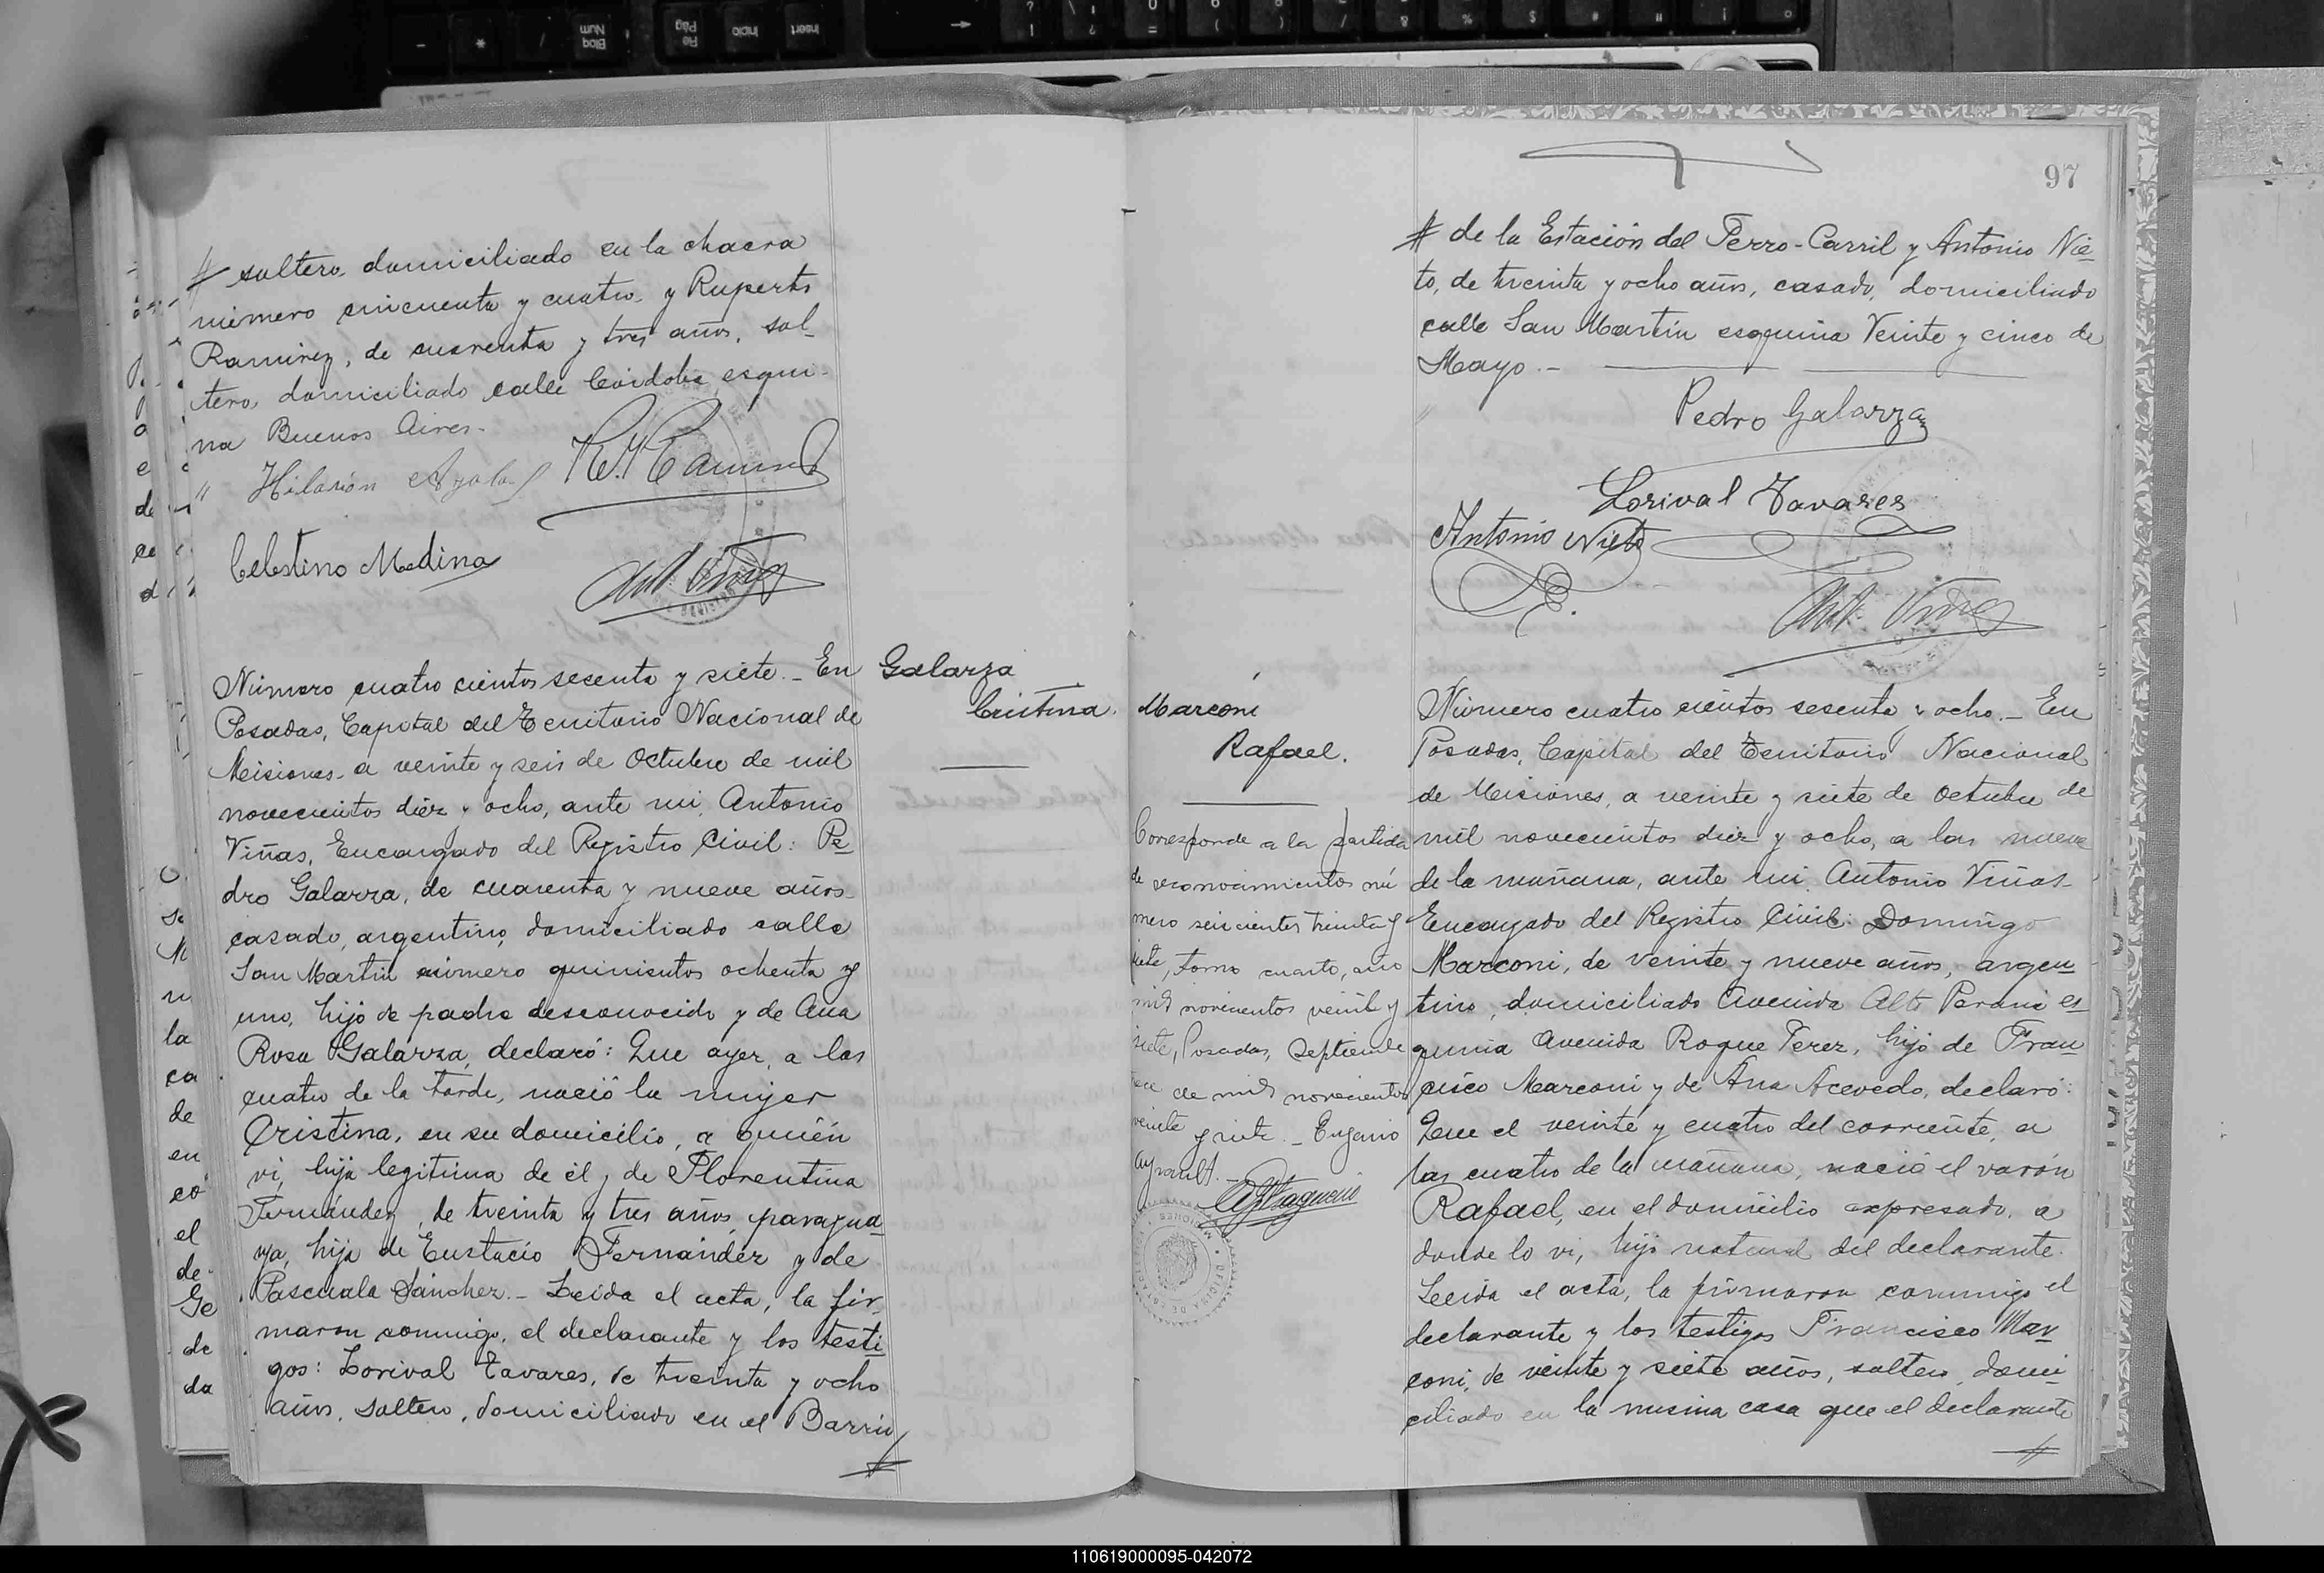 # soltero, domiciliado en la chacra
número cincuenta y cuatro y Ruperto
Ramirez, de cuarenta y tres años, sol-
tero, domiciliado calle Córdoba esqui-
na Buenos Aires.-
" Hilarión Ayala
Celestino Medina
Número cuatro cientos sesenta y siete.- En
Posadas, Capital del Territorio Nacional de
Misiones, a veinte y seis de Octubre de mil
novecientos diez y ocho, ante mi, Antonio
Viñas, Encargado del Registro Civil: Pe-
dro Galarza, de cuarenta y nueve años
casado, argentino, domiciliado calle
San Martin número quinientos ochenta y
uno, hijo de padre desconocido y de Ana
Rosa Galarza, declaró: Que ayer, a las
cuatro de la tarde, nació la mujer
Cristina, en su domicilio, a quién
vi, hija legitima de él y de Florentina
Fernández, de treinta y tres años, paragua-
ya, hija de Eustacio Fernández y de
Pascuala Sánchez.- Leida el acta, la fir-
maron conmigo, el declarante y los testi-
gos: Lorival Tavares, de treinta y ocho
años, soltero, domiciliado en el Barrio
#
Galarza
Cristina.
97
# de la Estación del Ferro-Carril y Antonio Nie-
to, de treinta y ocho años, casado, domiciliado
calle San Martin esquina Veinte y cinco de
Mayo.-
Pedro Galarza
Lorival Tavares
Antonio Nieto
Marconi
Rafael.
Corresponde a la partida
de reconocimientos nú
mero seiscientos treinta y
siete, tomo cuarto, año
mil novecientos veinte y
siete, Posadas, Septiembre
de mil novecientos
veinte y siete.- Eugenio
Ayrault.-
Número cuatro cientos sesenta y ocho.- En
Posadas, Capital del Territorio Nacional
de Misiones, a veinte y siete de Octubre de
mil novecientos diez y ocho, a las nueve
de la mañana, ante mi, Antonio Viñas
Encargado del Registro Civil: Domingo
Marconi, de veinte y nueve años, argen-
tino, domiciliado Avenida Alto Paraná es-
quina Avenida Roque Perez, hijo de Fran-
cisco Marconi y de Ana Acevedo, declaró:
Que el veinte y cuatro del corriente, a
las cuatro de la mañana, nació el varón
Rafael, en el domicilio expresado, a
donde lo vi, hijo natural del declarante.
Leida el acta, la firmaron conmigo el
declarante y los testigos Francisco Mar-
coni, de veinte y siete años, soltero, domi-
ciliado en la misma casa que el declarante
#
110619000095-042072